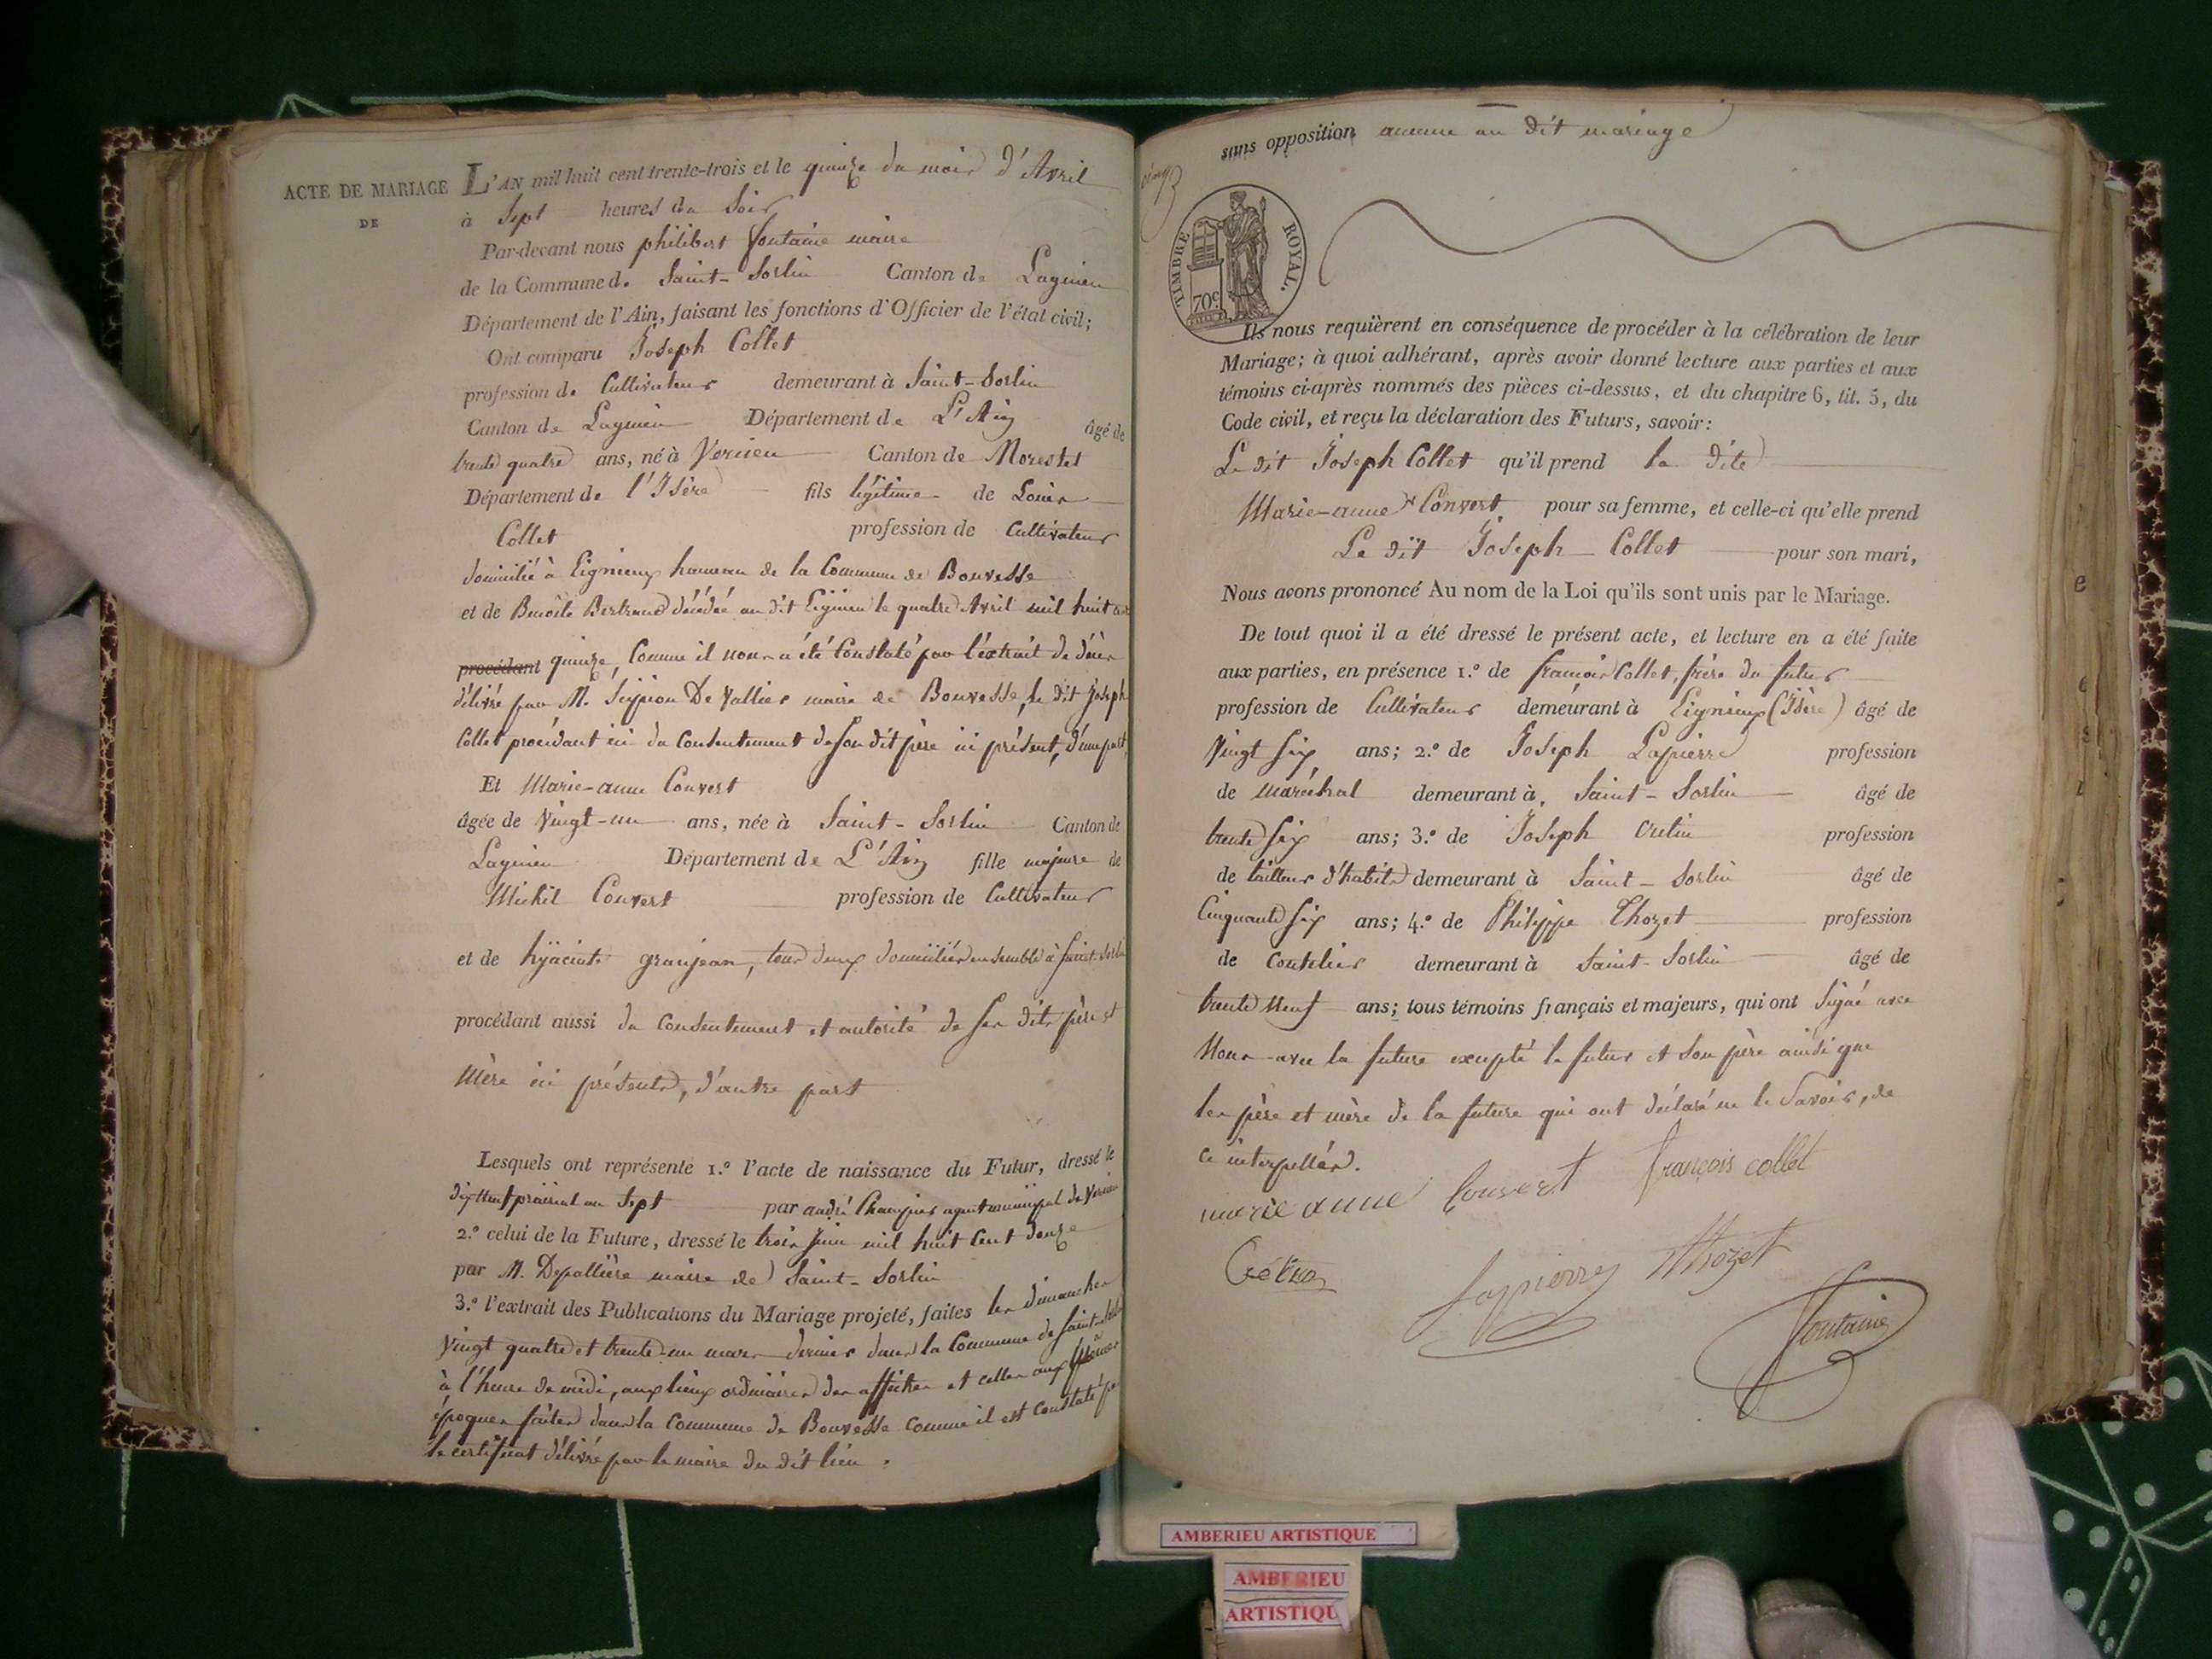 ACTE DE MARIAGE
DE
L'AN mil huit cent trente-trois et le quinze du mois d'Avril
à Sept heures du Soir
Par-devant nous philibert fontaine maire
de la Commune de Saint-Sorlin Canton de Lagnieu
Département de l'Ain, faisant les fonctions d'Officier de l'état civil;
Ont comparu Joseph Collet
profession de Cultivateur demeurant à Saint-Sorlin
Canton de Lagnieu Département de L'Ain âgé de
trente quatre ans, né à Vercieu Canton de Morestel
Département de l'Isère fils légitime de Louis
Collet profession de Cultivateur
domicilié à Eignieux hameau de la Commune de Bouvesse
et de Benoîte Bertrand décédée au dit Eignieu le quatre Avril mil huit cent
procédant quinze, Comme il nous a été Constaté par l'extrait de décès
délivré par M. Scipion De Vallier maire de Bouvesse, le dit Joseph
Collet procédant ici du Consentement de son dit père ici présent, d'une part,
Et Marie-anne Convert
âgée de Vingt-un ans, née à Saint-Sorlin Canton de
Lagnieu Département de L'Ain fille majeure de
Michel Convert profession de Cultivateur
et de hÿacinte granjean, tous deux domiciliés ensemble à Saint-Sorlin
procédant aussi du Consentement et autorité de ses dits père et
Mère ici présents, d'autre part
Lesquels ont représenté 1.º l'acte de naissance du Futur, dressé le
dix neuf prairial an Sept par andré Champier agent municipal de Vercieu
2.º celui de la Future, dressé le trois Juin mil huit Cent douze
par M. Depollière maire de Saint-Sorlin
3.º l'extrait des Publications du Mariage projeté, faites les dimanches
Vingt quatre et trente-un mars dernier dans la Commune de Saint-Sorlin
à l'heure de midi, aux lieux ordinaires des affiches et celles aux
époques faites dans la Commune de Bouvesse comme il est constaté par
le certificat délivré par le maire du dit lieu.
sans opposition aucune au dit mariage
cinq
TIMBRE ROYAL.
70c
Ils nous requièrent en conséquence de procéder à la célébration de leur
Mariage; à quoi adhérant, après avoir donné lecture aux parties et aux
témoins ci-après nommés des pièces ci-dessus, et du chapitre 6, tit. 5, du
Code civil, et reçu la déclaration des Futurs, savoir:
Le dit Joseph Collet qu'il prend la dite
Marie-anne Convert pour sa femme, et celle-ci qu'elle prend
Le dit Joseph Collet pour son mari,
Nous avons prononcé Au nom de la Loi qu'ils sont unis par le Mariage.
De tout quoi il a été dressé le présent acte, et lecture en a été faite
aux parties, en présence 1.º de françois Collet, frère du futur
profession de Cultivateur demeurant à Eignieux (Isère) âgé de
Vingt six ans; 2.º de Joseph Lapierre profession
de Maréchal demeurant à Saint-Sorlin âgé de
trente six ans; 3.º de Joseph Cretin profession
de tailleur d'habits demeurant à Saint-Sorlin âgé de
Cinquante six ans; 4.º de Philippe Thozet profession
de Coutelier demeurant à Saint-Sorlin âgé de
trente Neuf ans; tous témoins français et majeurs, qui ont Signé avec
Nous avec la future excepté le futur et son père ainsi que
les père et mère de la future qui ont déclaré ne le Savoir, de
ce interpellés.
marie anne Convert françois collet
Crétin
Lapierre Thozet
fontaine
AMBERIEU ARTISTIQUE
AMBERIEU
ARTISTIQU